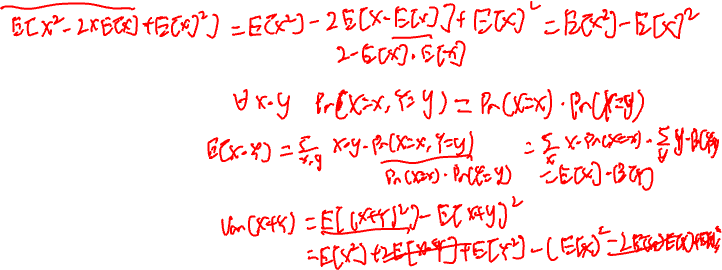 E[X²-2XE[X]+E[X]²] = E[X²] - 2E[X·E[X]] + E[X]² = E[X²] - E[X]²
2·E[X]·E[X]
∀ x,y Pr(X=x, Y=y) = Pr(X=x)·Pr(Y=y)
E[X·Y] = Σ x·y·Pr(X=x, Y=y) = Σ x·Pr(X=x)·Σ y·
x,y x y
Pr(X=x)·Pr(Y=y) = E[X]·E[Y]
Var(X+Y) = E[(X+Y)²] - E[X+Y]²
= E[X²] + 2E[X·Y] + E[Y²] - (E[X]² - 2E[X]E[Y] +